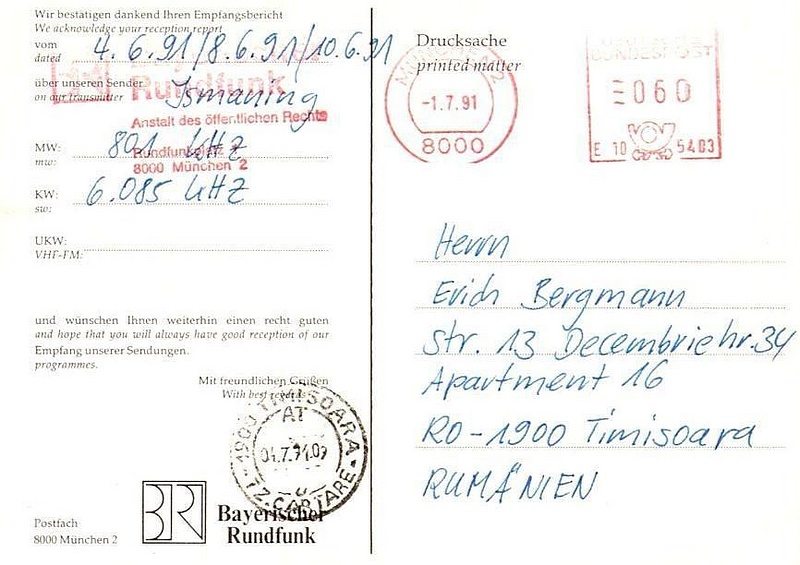 Wir bestätigen dankend Ihren Empfangsbericht
We acknowledge your reception report
vom 4.6.91/8.6.91/10.6.91
dated
über unseren Sender Ismaning
on our transmitter
Rundfunk
Anstalt des öffentlichen Rechts
MW: 801 kHz
mw:
Rundfunkplatz 1
8000 München 2
KW: 6.085 kHz
sw:
UKW:
VHF-FM:
und wünschen Ihnen weiterhin einen recht guten
and hope that you will always have good reception of our
Empfang unserer Sendungen.
programmes.
Mit freundlichen Grüßen
With best regards
1900 TIMISOARA
AT
TZ. CARTARE
BR
Bayerischer
Rundfunk
Postfach
8000 München 2
Drucksache
printed matter
MÜNCHEN 2
-1.7.91
8000
BUNDESPOST
060
E 10 5403
Herrn
Erich Bergmann
Str. 13 Decembrie nr. 34
Apartment 16
RO-1900 Timisoara
RUMÄNIEN